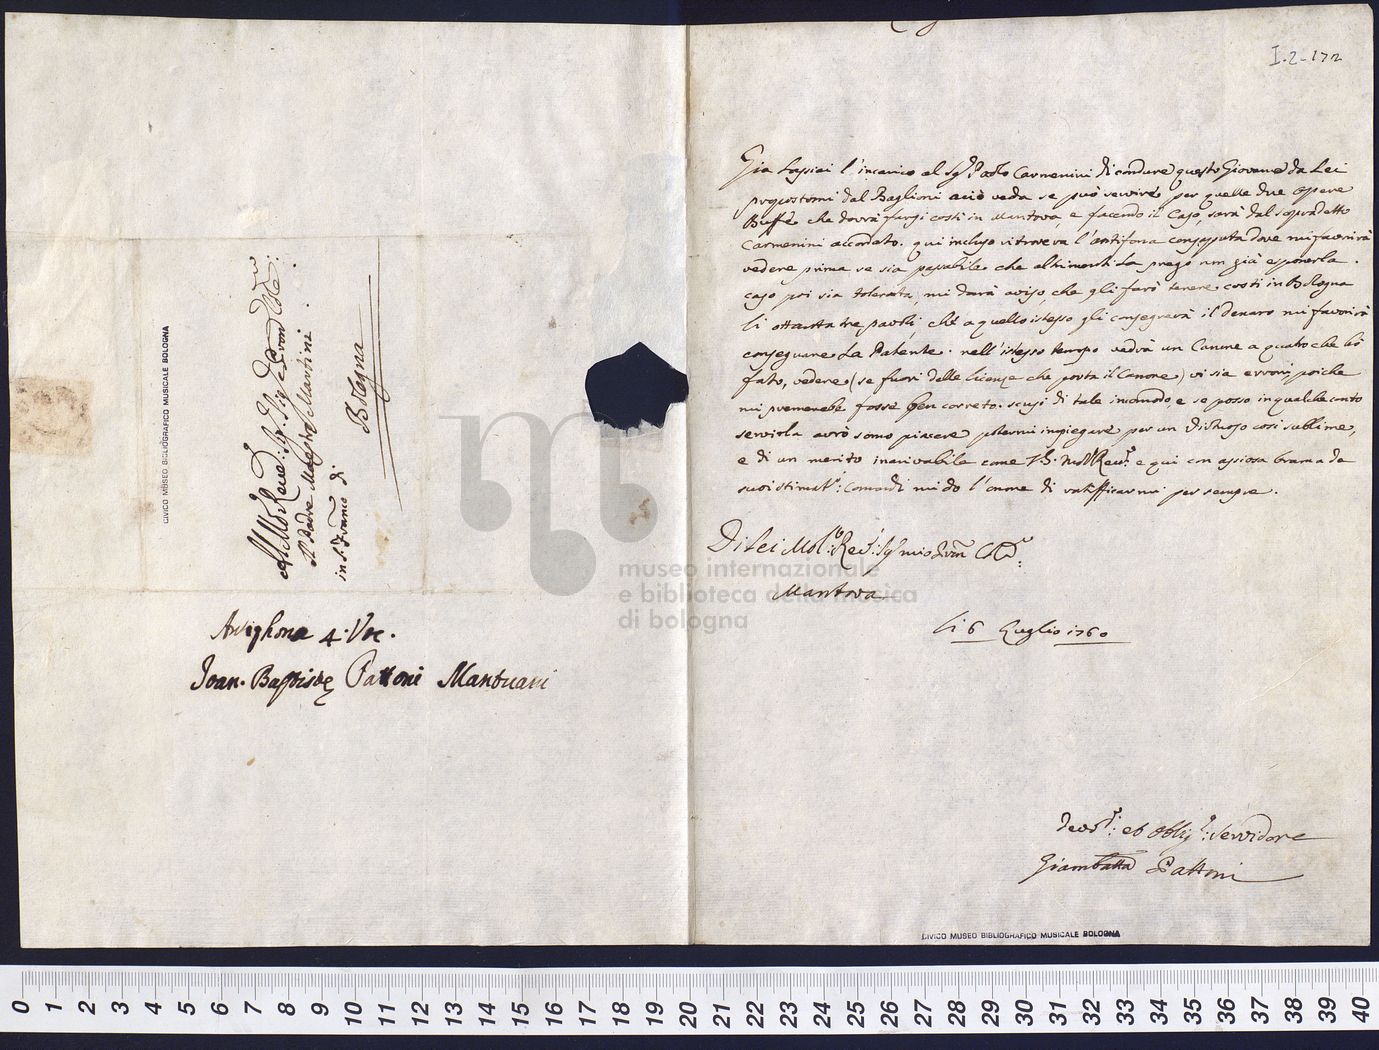 I.2-172
Gia lassiai l'incarico al Sg.r Paolo Carmenini di condure questo Giovane da Lei
propostomi dal Baglioni aciò veda se può servire per quelle due opere
Buffe che dovrà farsi costi in Mantova, e facendo il caso, sarà dal sopradetto
Carmenini accordato. qui incluso vi troverà l'antifona composta dove mi favorirà
vedere prima se sia passabile che altrimenti la prego non già esponerla.
caso poi sia tolerata, mi darà aviso, che gli farò tenere costi in Bologna
li ottanta tre paoli, che a quello istesso gli consegnarà il denaro mi favorirà
consegnare La Patente. nell'istesso tempo vedrà un Canone a quatro che hò
fato, vedere (se fuori delle licenze che porta il Canone) vi sia errori poiche
mi premerebe fosse ben coreto. scusi di tale incomodo, e se posso in qualche conto
servirla avrò somo piacere potermi impiegare per un Virtuoso cosi sublime,
e di un merito inarivabile come V.S. Molt Rev.da e qui con assiosa brama de
suoi stimat.mi: Comandi mi do l'onore di ratifficarmi per sempre.
Di Lei Mol.to Rev.do Sg.r mio Pron Col.mo
Mantova
li 6 Luglio 1760
Devot.mo: et Obblig.mo: Servidore
Giambatta Pattoni
CIVICO MUSEO BIBLIOGRAFICO MUSICALE BOLOGNA
Al M.to Rever: Sig.r Sig.r Pron Col.mo
Il Padre Maestro Martini
in S. Franco di
Bologna
CIVICO MUSEO BIBLIOGRAFICO MUSICALE BOLOGNA
Antiphona 4. Voc.
Joan. Baptiste Pattoni Mantuani
museo internazionale
e biblioteca della musica
di bologna
0 1 2 3 4 5 6 7 8 9 10 11 12 13 14 15 16 17 18 19 20 21 22 23 24 25 26 27 28 29 30 31 32 33 34 35 36 37 38 39 40